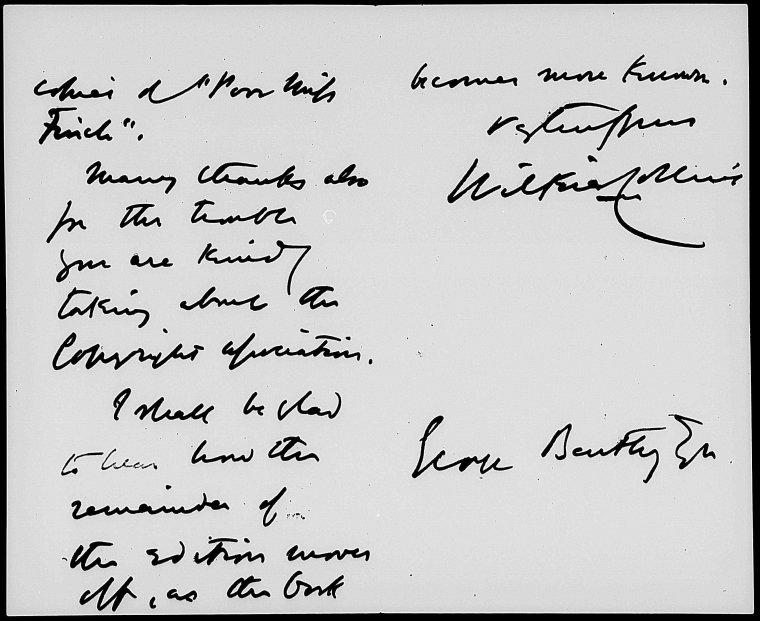 copies of "Poor Miss
Finch".
Many thanks also
for the trouble
you are kindly
taking about the
Copyright association.
I shall be glad
to hear how the
remainder of
the edition moves
off, as the book
becomes more known.
Vy truly yours
Wilkie Collins
George Bentley Esq